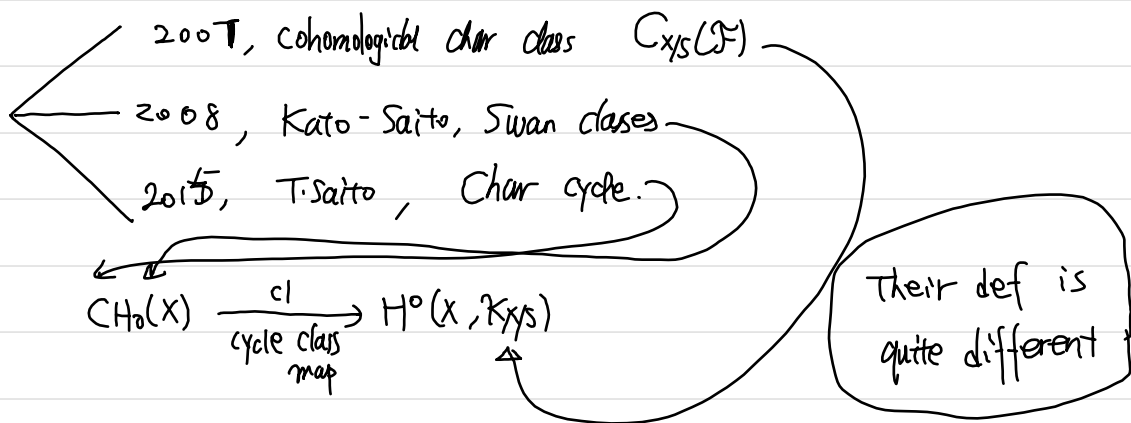 2007, cohomological char class C_{X/S}(F)
2008, Kato-Saito, Swan classes
2015, T.Saito, Char cycle.
CH₀(X) —cl→ H⁰(X, K_{X/S})
cycle class
map
Their def is
quite different